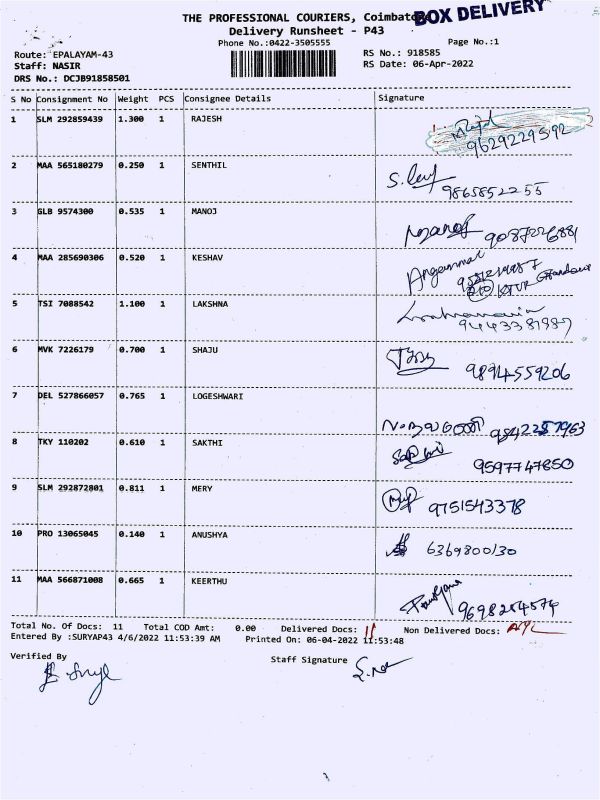 THE PROFESSIONAL COURIERS, Coimbatore
BOX DELIVERY
Delivery Runsheet - P43
Phone No.:0422-3505555
Page No.:1
Route: EPALAYAM-43
RS No.: 918585
Staff: NASIR
RS Date: 06-Apr-2022
DRS No.: DCJB91858501
S No Consignment No Weight PCS Consignee Details Signature
1 SLM 292859439 1.300 1 RAJESH
9629229592
2 MAA 565180279 0.250 1 SENTHIL
9865852255
3 GLB 9574300 0.535 1 MANOJ Manoj 9087226881
4 MAA 285690306 0.520 1 KESHAV Angammal
5 TSI 7088542 1.100 1 LAKSHNA
9443381987
6 MVK 7226179 0.700 1 SHAJU
9894559206
7 DEL 527866057 0.765 1 LOGESHWARI
9842257963
8 TKY 110202 0.610 1 SAKTHI Sakthi
9597747850
9 SLM 292872801 0.811 1 MERY
9751543378
10 PRO 13065045 0.140 1 ANUSHYA
6369800130
11 MAA 566871008 0.665 1 KEERTHU
9698254574
Total No. Of Docs: 11 Total COD Amt: 0.00 Delivered Docs: 11 Non Delivered Docs: NIL
Entered By :SURYAP43 4/6/2022 11:53:39 AM Printed On: 06-04-2022 11:53:48
Verified By
Staff Signature